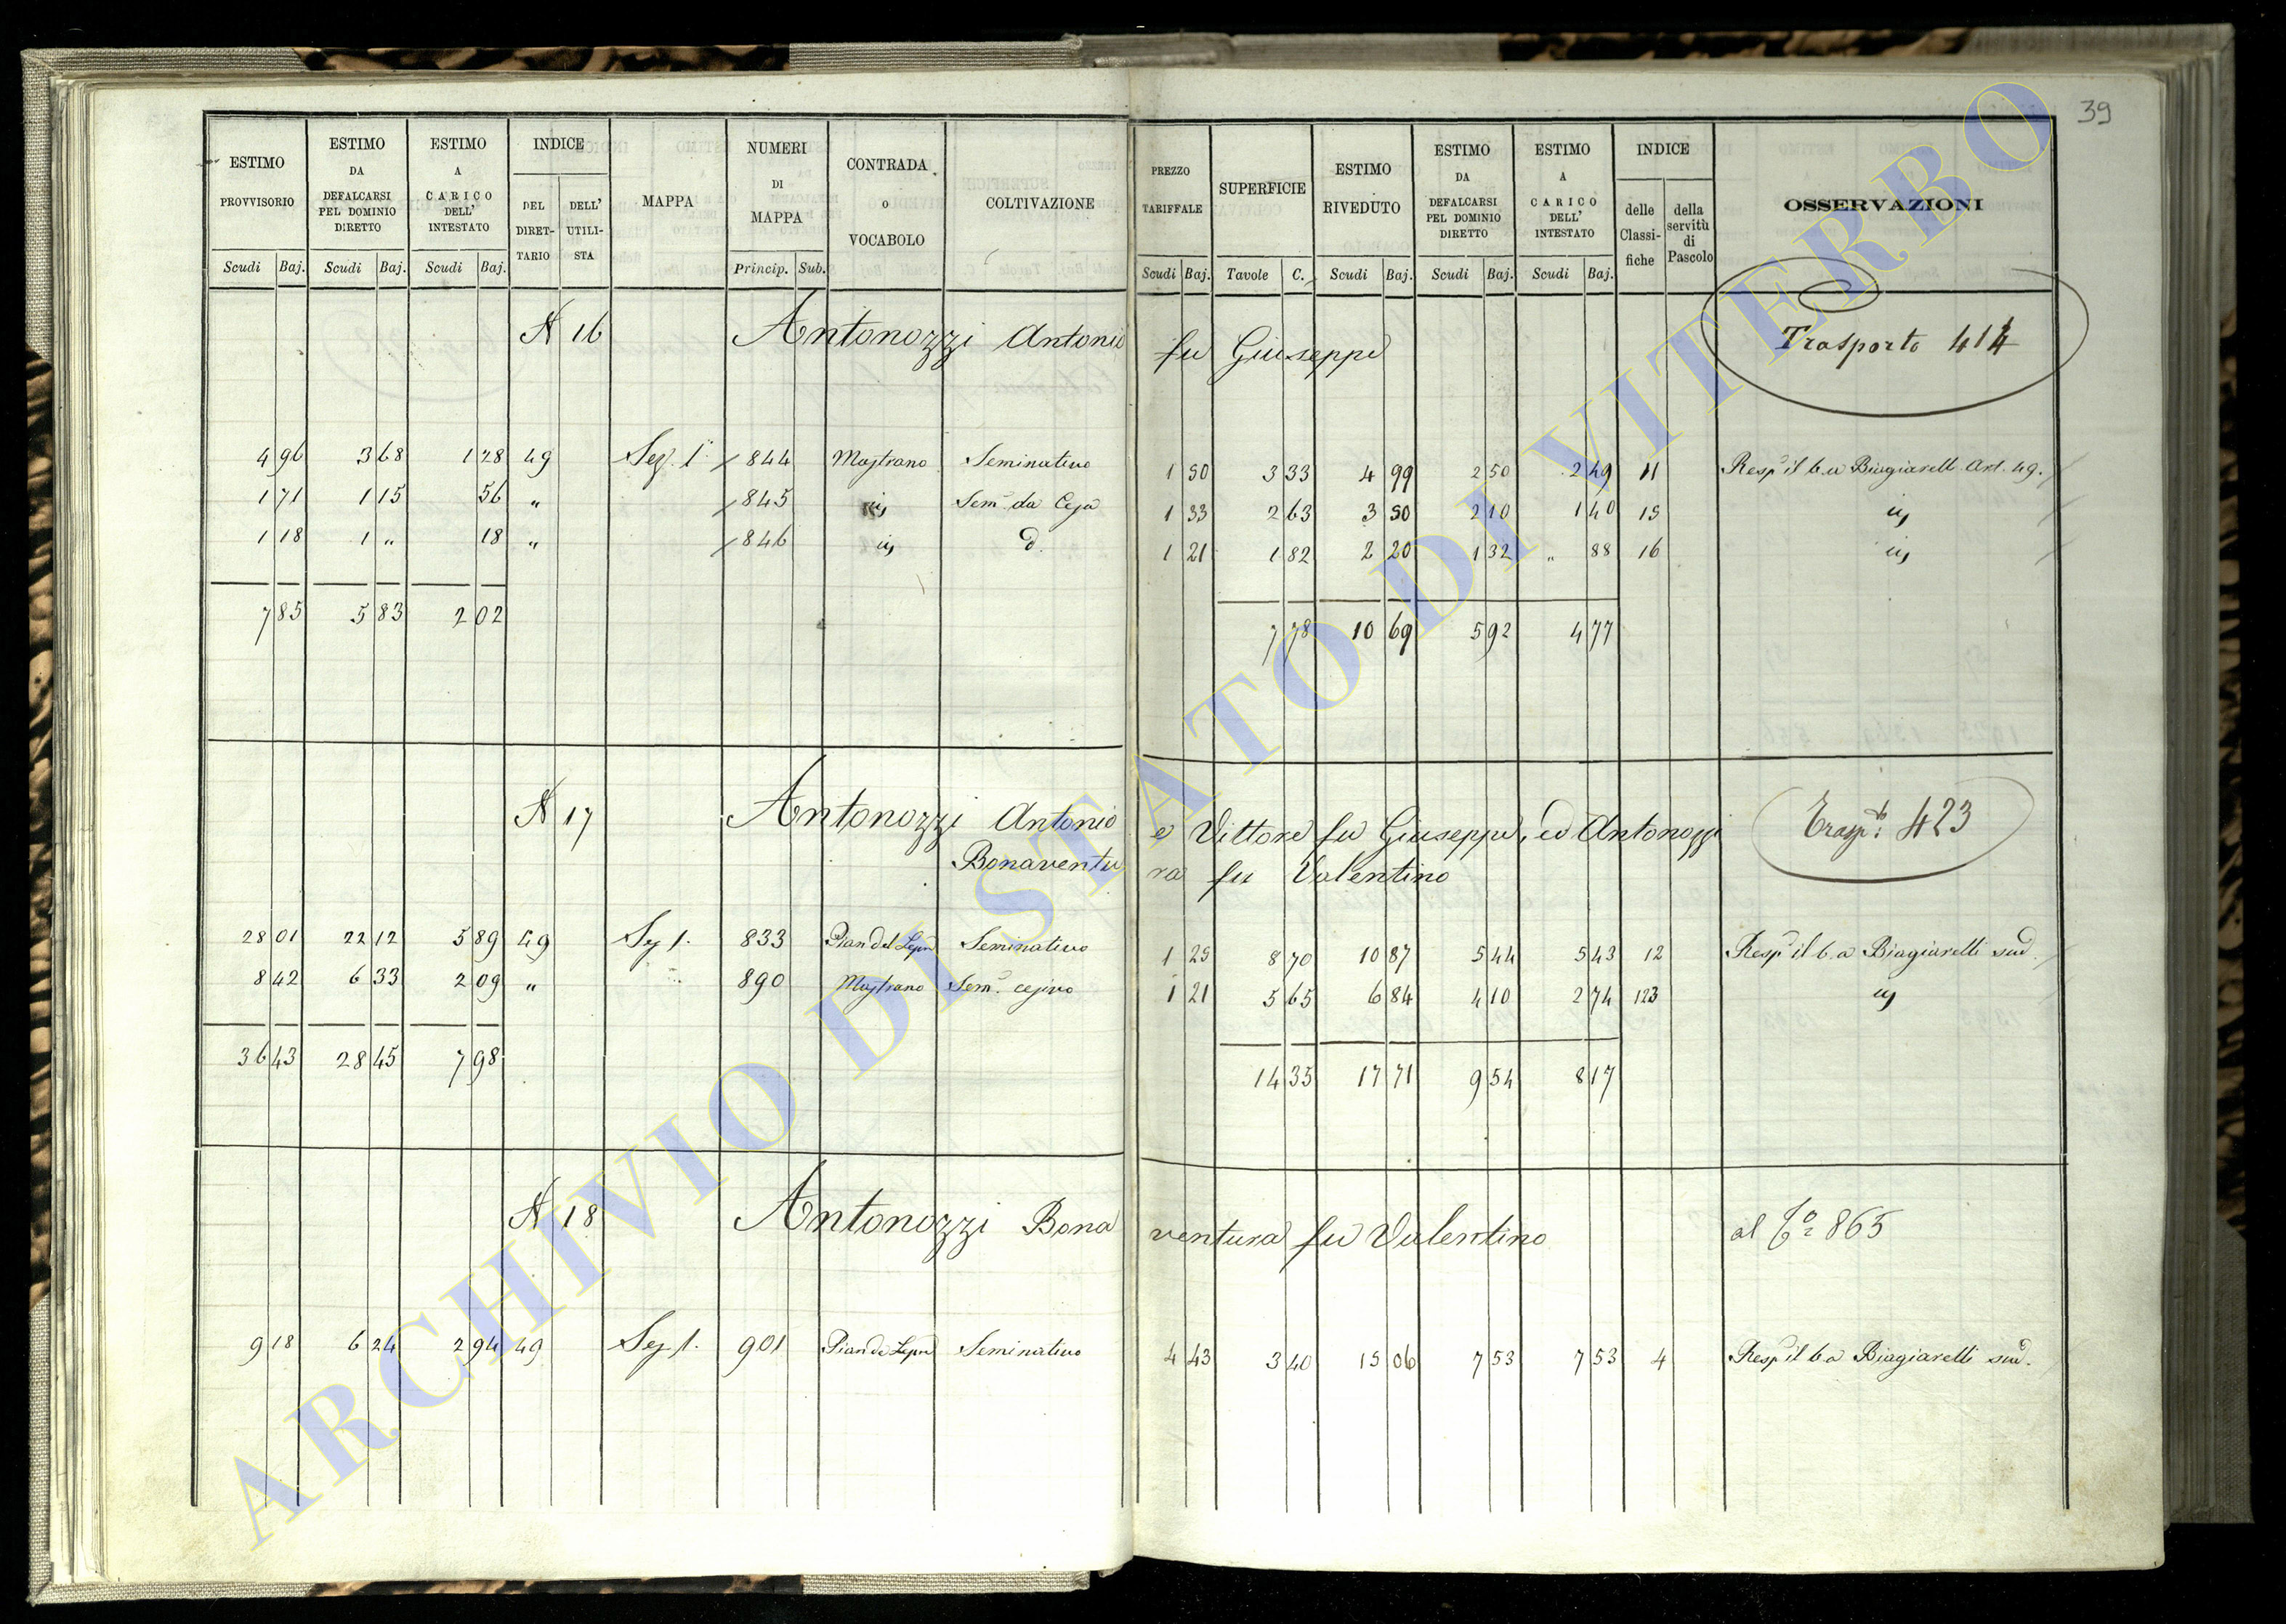 39
ESTIMO PROVVISORIO | ESTIMO DA DEFALCARSI PEL DOMINIO DIRETTO | ESTIMO A CARICO DELL' INTESTATO | INDICE | MAPPA | NUMERI DI MAPPA | CONTRADA o VOCABOLO | COLTIVAZIONE | PREZZO TARIFFALE | SUPERFICIE | ESTIMO RIVEDUTO | ESTIMO DA DEFALCARSI PEL DOMINIO DIRETTO | ESTIMO A CARICO DELL' INTESTATO | INDICE | OSSERVAZIONI
DEL DIRETTARIO | DELL' UTILISTA | delle Classifiche | della servitù di Pascolo
Scudi | Baj. | Scudi | Baj. | Scudi | Baj. | Princip. | Sub. | Scudi | Baj. | Tavole | C. | Scudi | Baj. | Scudi | Baj. | Scudi | Baj.
N 16 Antonozzi Antonio fu Giuseppe Trasporto 414
4 96 | 3 68 | 1 28 | 49 | Sez. 1. | 844 | Mastrano | Seminativo | 1 50 | 3 33 | 4 99 | 2 50 | 2 49 | 11 | Resp. il b. a Biagiarelli Art. 49.
1 71 | 1 15 | 56 | " | 845 | id | Sem. da Cesa | 1 33 | 2 63 | 3 50 | 2 10 | 1 40 | 15 | id
1 18 | 1 " | 18 | " | 846 | id | d. | 1 21 | 1 82 | 2 20 | 1 32 | " 88 | 16 | id
7 85 | 5 83 | 2 02 | 7 78 | 10 69 | 5 92 | 4 77
N 17 Antonozzi Antonio e Vittore fu Giuseppe, ed Antonozzi Trasp.to 423
Bonaventura fu Valentino
28 01 | 22 12 | 5 89 | 49 | Sez 1. | 833 | Pian del Lepre | Seminativo | 1 25 | 8 70 | 10 87 | 5 44 | 5 43 | 12 | Resp il b. a Biagiarelli sud.
8 42 | 6 33 | 2 09 | " | " | 890 | Mastrano | Sem. cesivo | 1 21 | 5 65 | 6 84 | 4 10 | 2 74 | 123 | id
36 43 | 28 45 | 7 98 | 14 35 | 17 71 | 9 54 | 8 17
N 18 Antonozzi Bonaventura fu Valentino al fo 865
9 18 | 6 24 | 2 94 | 49 | Sez 1. | 901 | Pian de Lepre | Seminativo | 4 43 | 3 40 | 15 06 | 7 53 | 7 53 | 4 | Resp il b. a Biagiarelli sud.
ARCHIVIO DI STATO DI VITERBO